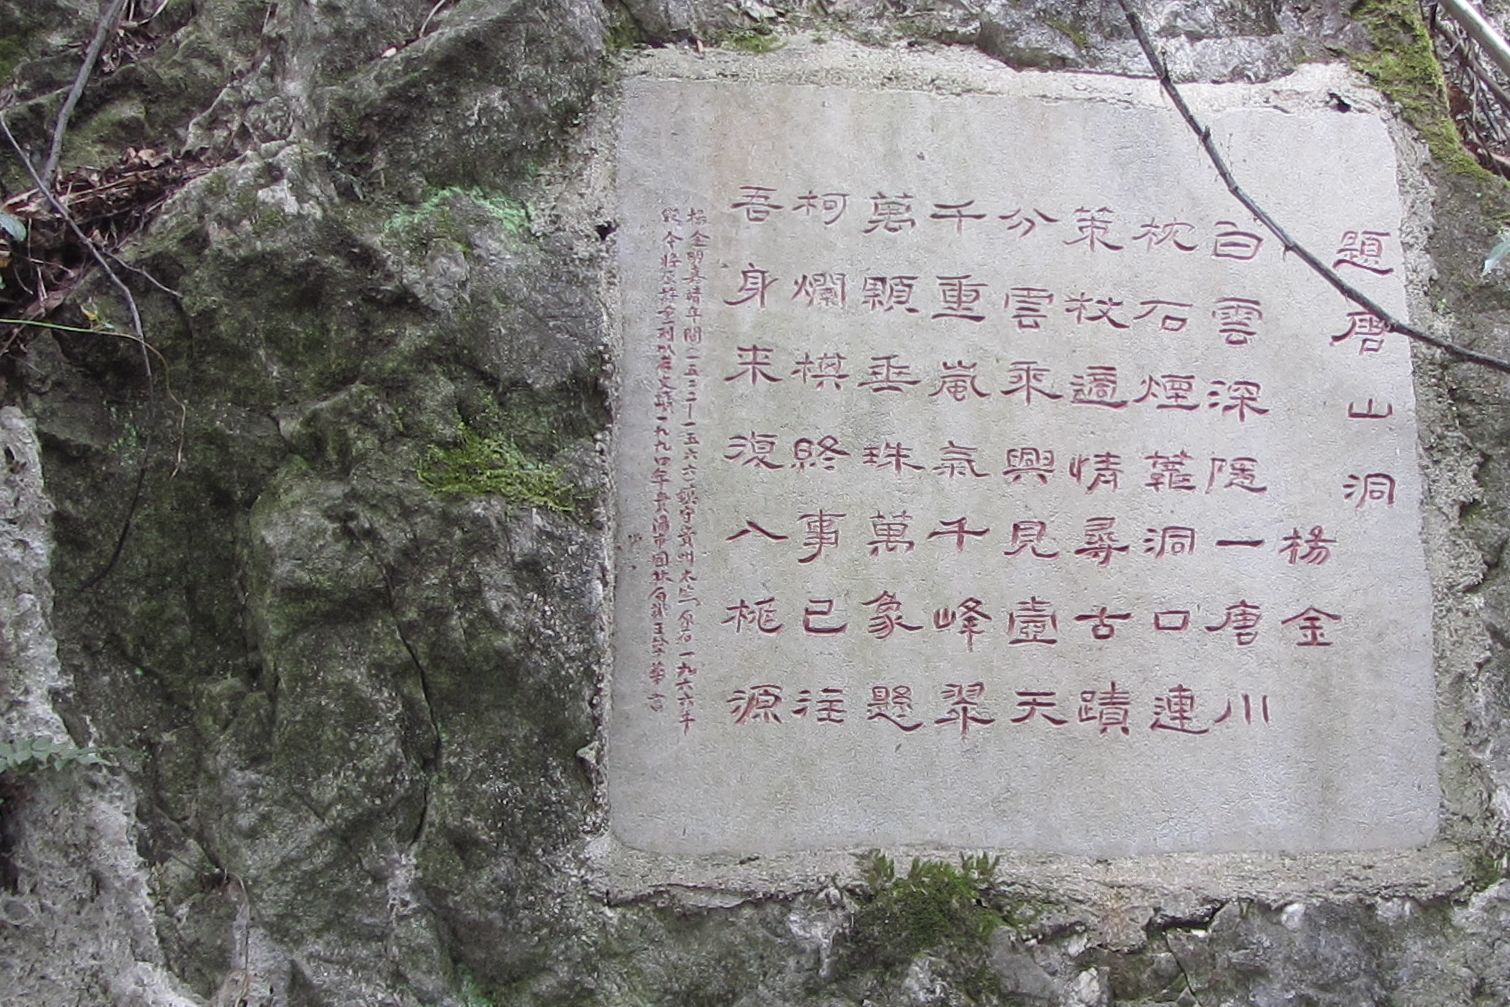 題唐山洞
楊金
白雲深隱一唐川
枕石煙蘿洞口連
策杖適情尋古蹟
分雲乘興見壺天
千重嵐氣千峰翠
萬顆垂珠萬象懸
柯爛棋終事已往
吾身来復入桃源
楊金明嘉靖年間一五二二—一五六六鎮守貴州太監原石一九六六年
毀今將
一九九四年貴陽市園林局